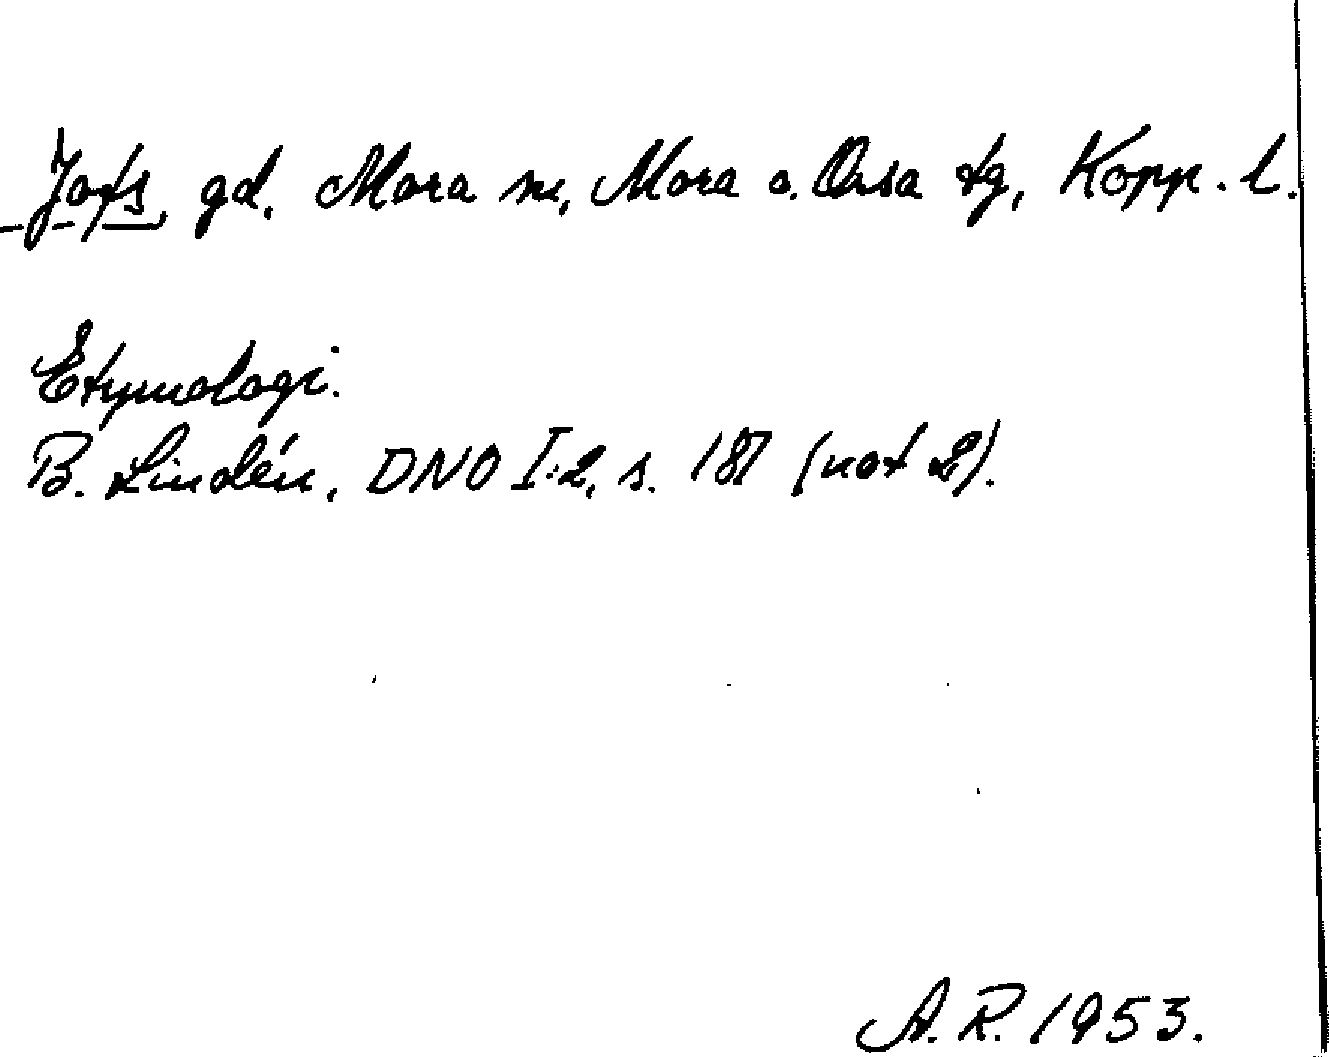 Jofs, gd. Mora sn, Mora o. Orsa tg, Kopp. l.
Etymologi.
B. Lindén, DNO I:2, s. 187 (not 2).
A.R. 1953.